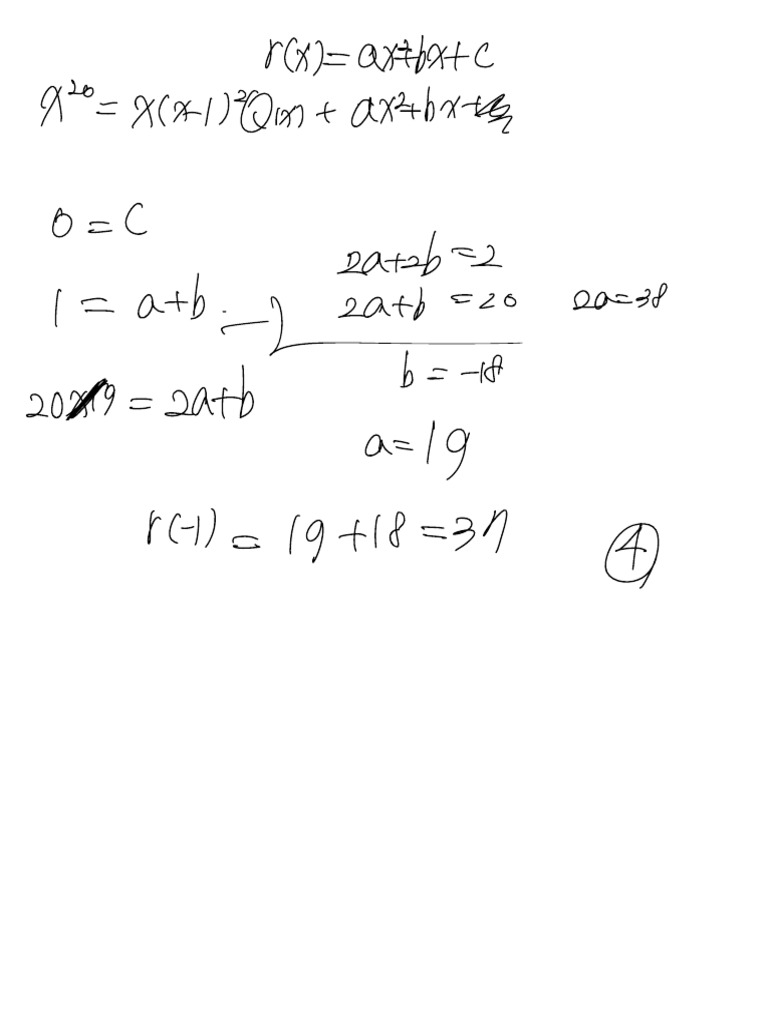 r(x)=ax²+bx+c
x²⁰=x(x-1)²Q(x)+ax²+bx+
0=c
2a+2b=2
1=a+b
2a+b=20 2a=38
b=-18
20 = 2a+b
a=19
r(-1)=19+18=37
④